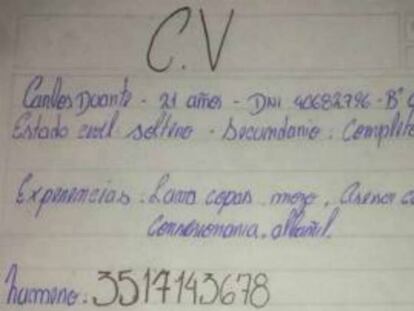 C.V
Carlos Duarte - 21 años - DNI 40682796 - B°
Estado civil soltero - Secundario: Complet
Experiencias: Lava copas, mozo, Asesor c
Concesionaria, albañil.
humero: 3517143678